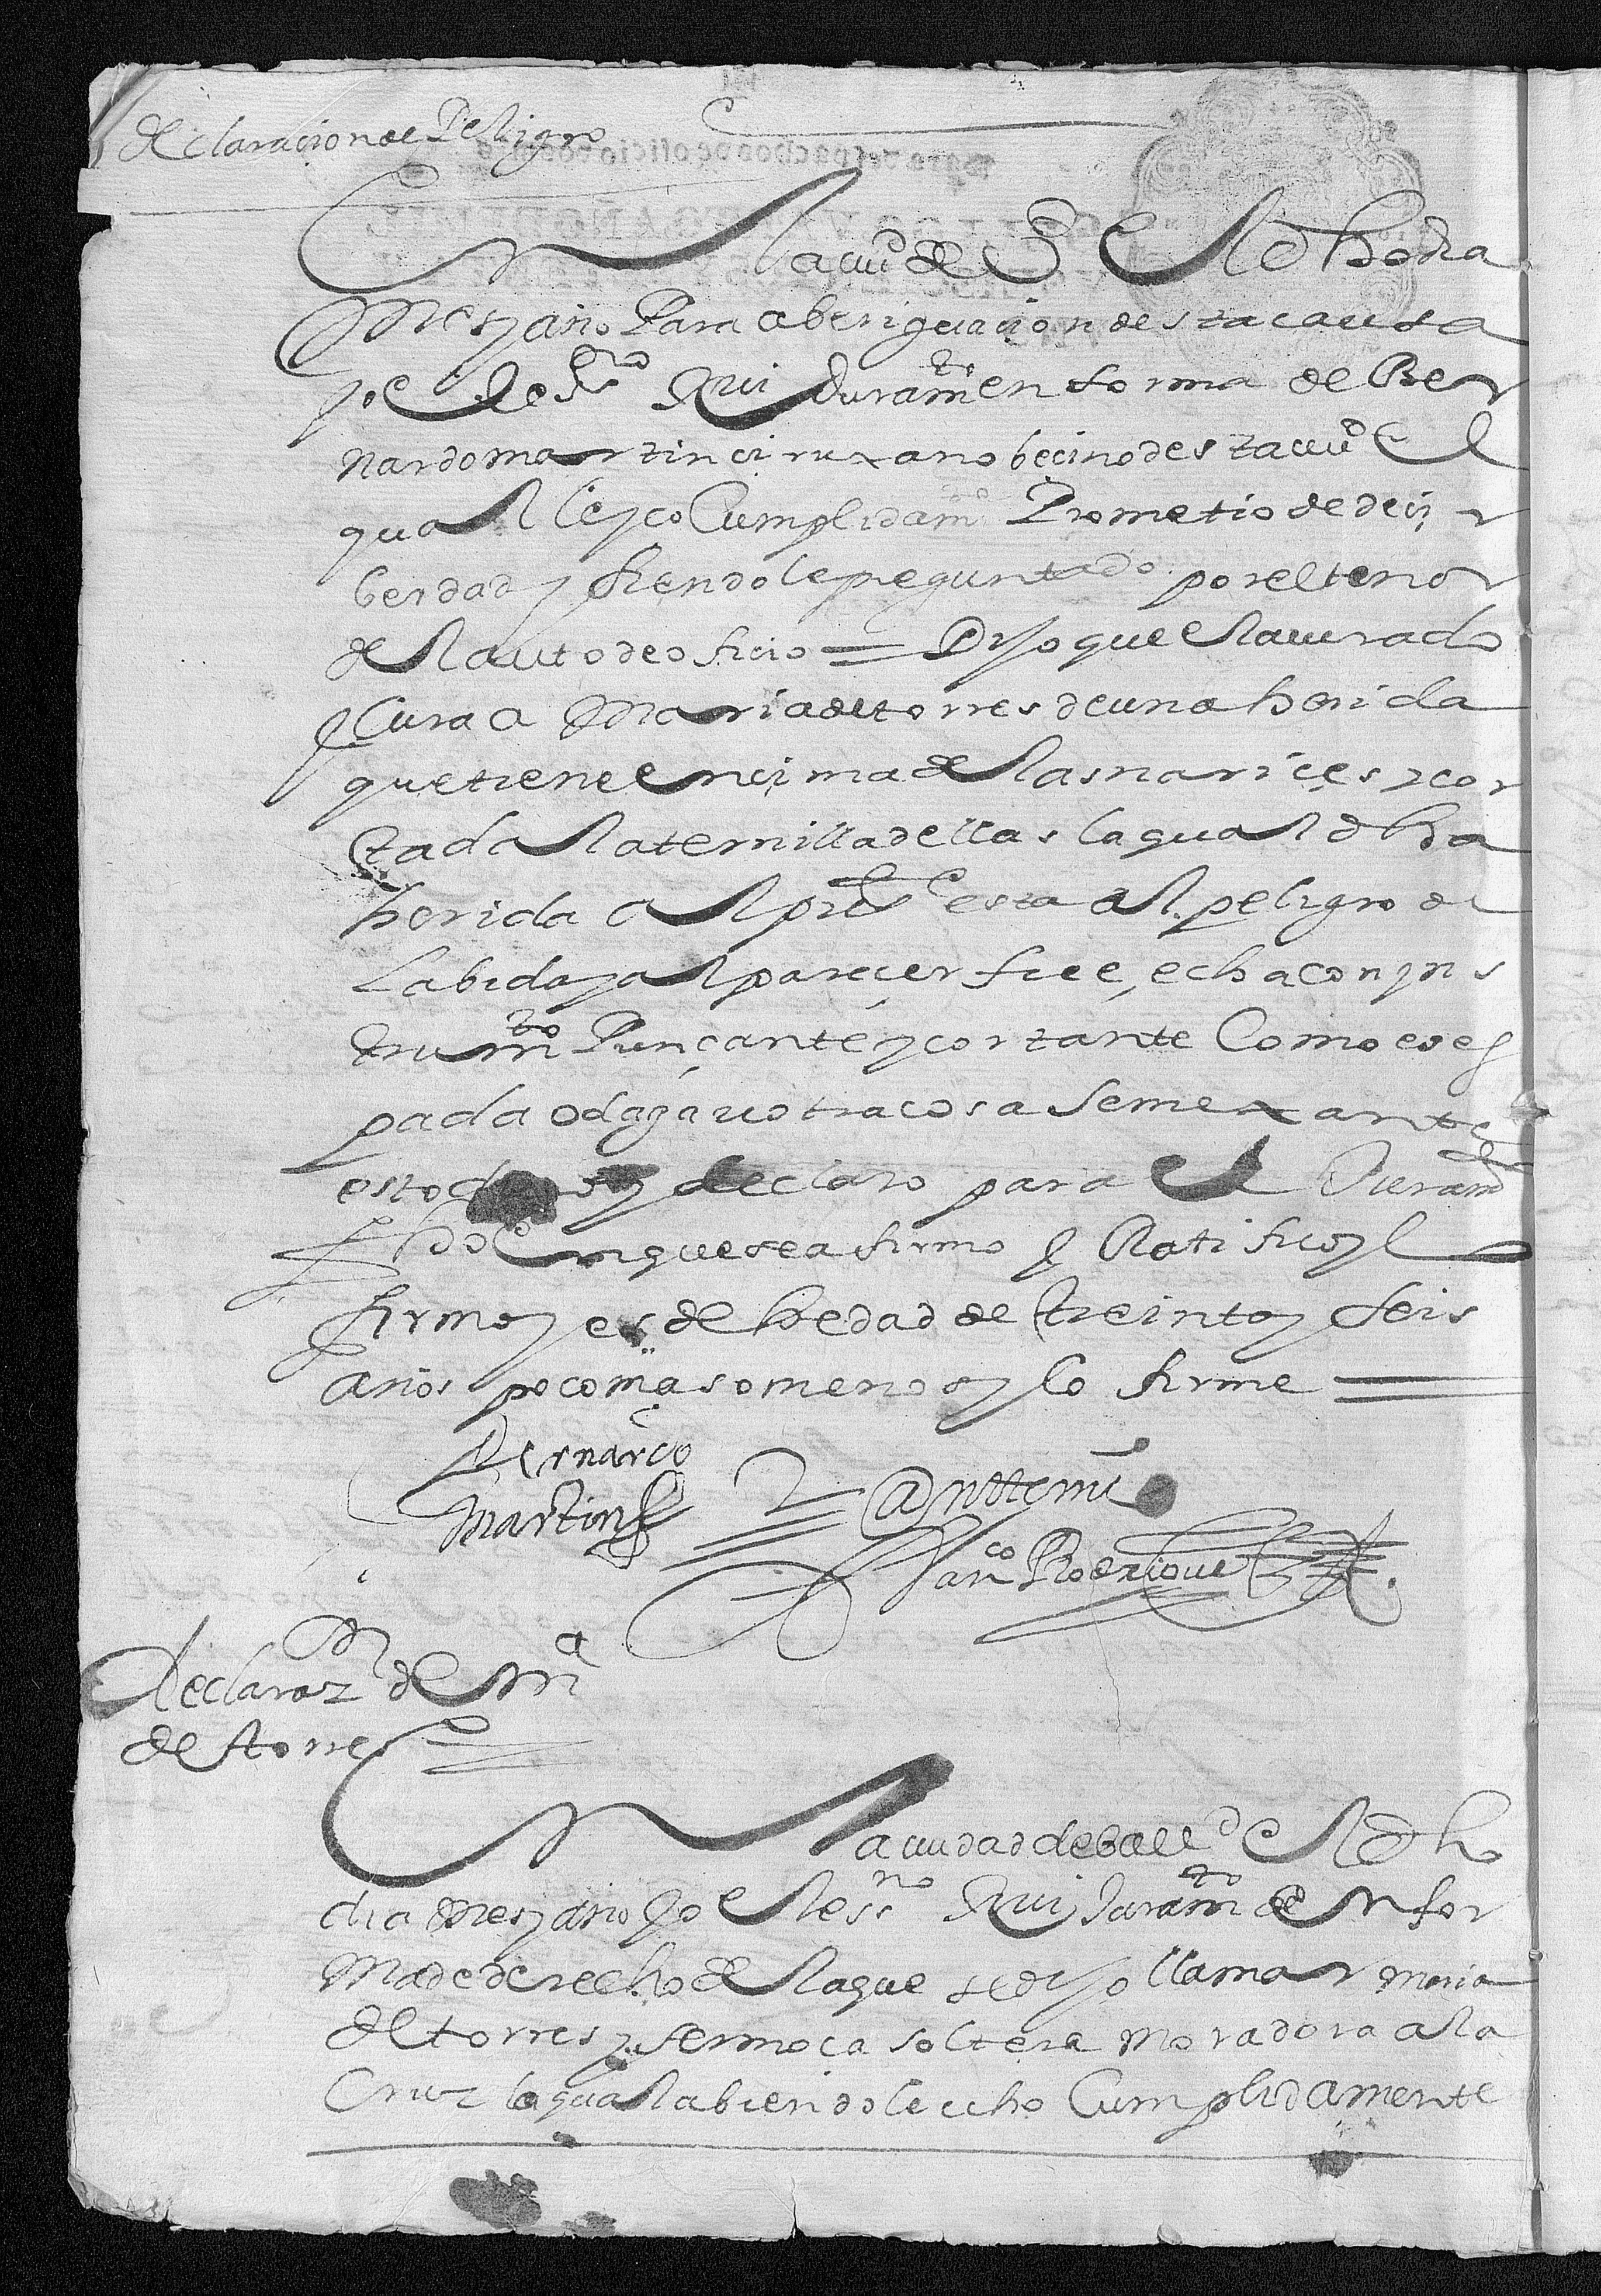 declaracion de Peligro
En la ciud de Vd El dho dia
mes y año Para aberiguacion desta causa
yo el dho ssno Reciui Juramto en forma de Ber
nardo martin cirujano becino desta ciud El
qual le hiço Cumplidamte Prometio de decir
berdad y siendole preguntado por el tenor
del auto de oficio = Dijo que el a curado
y Cura a Maria de torres de una herida
que tiene encima de las narices y cor
tada la ternilla dellas la qual dha
herida al prete esta al peligro de
La bida y al parecer fue echa con yns
trumto Punçante y cortante Como es es
pada o daga u otra cosa Semexante
esto dijo y declaro para el Juramto
fho En que se afirmo y Ratifico y lo
firmo y es de hedad de treinta y seis
años poco mas o menos y lo firme =
Bernardo
Martin
Antte mi
Franco Rodriguez
Declaraon de ma
de torres
En la ciudad de balld El dho
dia mes y año yo el essno Reciui Juramto en for
ma de derecho de la que se dijo llamar maria
de torres y ser moça soltera moradora a la
Cruz la qual abiendole echo Cumplidamente